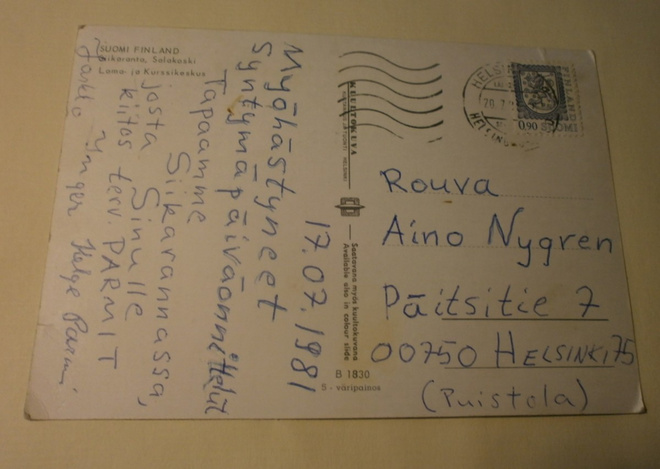 SUOMI FINLAND
Siikaranta, Salakoski
Loma- ja Kurssikeskus
17.07.1981
Myöhästyneet
syntymäpäiväonnittelut
Tapaamme
Siikarannassa,
josta Sinulle
kiitos terv. PARMIT
Jarkko Inger Helge Parmi
KUULTOKUVA
HELSINKI
Saatavana myös kuultokuvana
Available also in colour slide
B 1830
5 - väripainos
0,90 SUOMI
Rouva
Aino Nygren
Päitsitie 7
00750 HELSINKI 75
(Puistola)